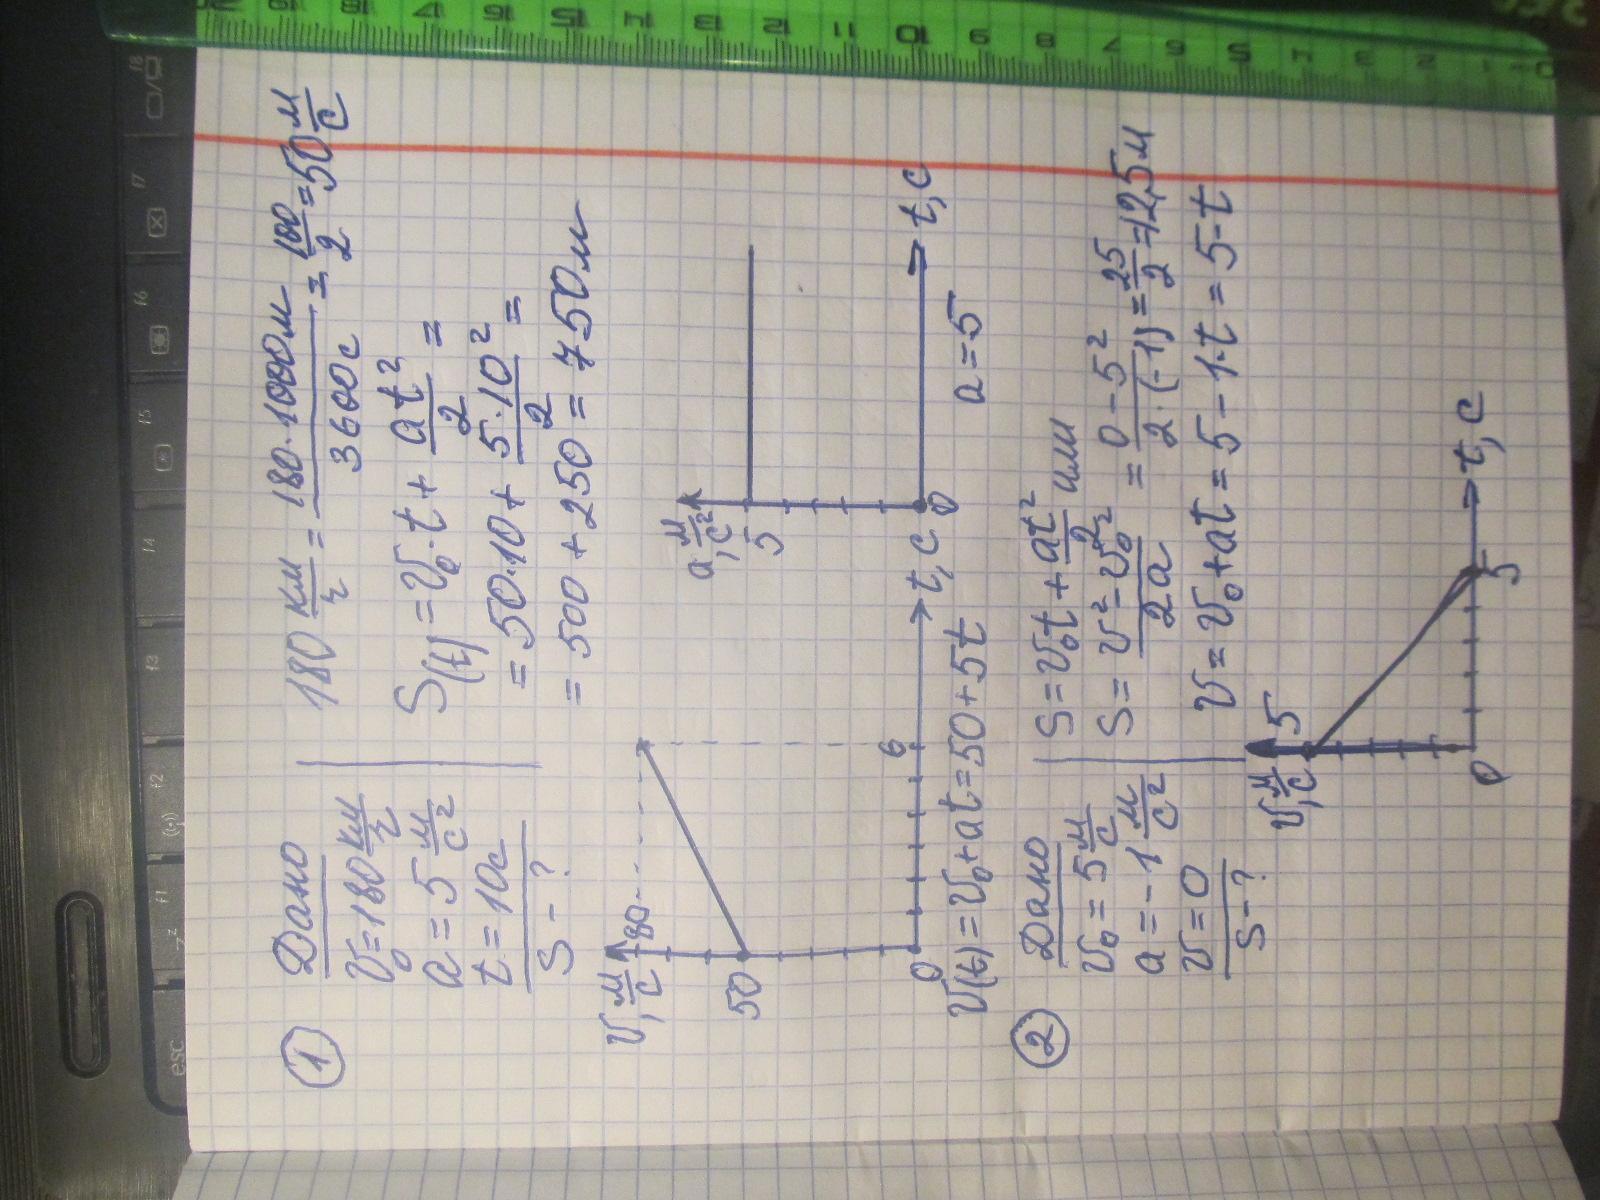 ① Дано
V₀=180 км/ч
a = 5 м/с²
t = 10с
S - ?
180 км/ч = 180·1000м/3600с = 100/2 = 50 м/с
S(t) = V₀·t + at²/2 =
= 50·10 + 5·10²/2 =
= 500 + 250 = 750м
V, м/с
80
50
0
6
t, c
V(t) = V₀+at = 50+5t
a, м/с²
5
0
t, c
a = 5
② Дано
V₀ = 5 м/с
a = -1 м/с²
V = 0
S - ?
S = V₀t + at²/2 или
S = V²-V₀²/2a = 0-5²/2·(-1) = 25/2 = 12,5м
V = V₀+at = 5 - 1·t = 5-t
V, м/с
5
0
5
t, c
esc
f1
f2
f3
f4
f5
f6
f7
f8
20
18
17
16
15
14
13
12
11
10
9
8
7
6
5
4
3
2
1
0